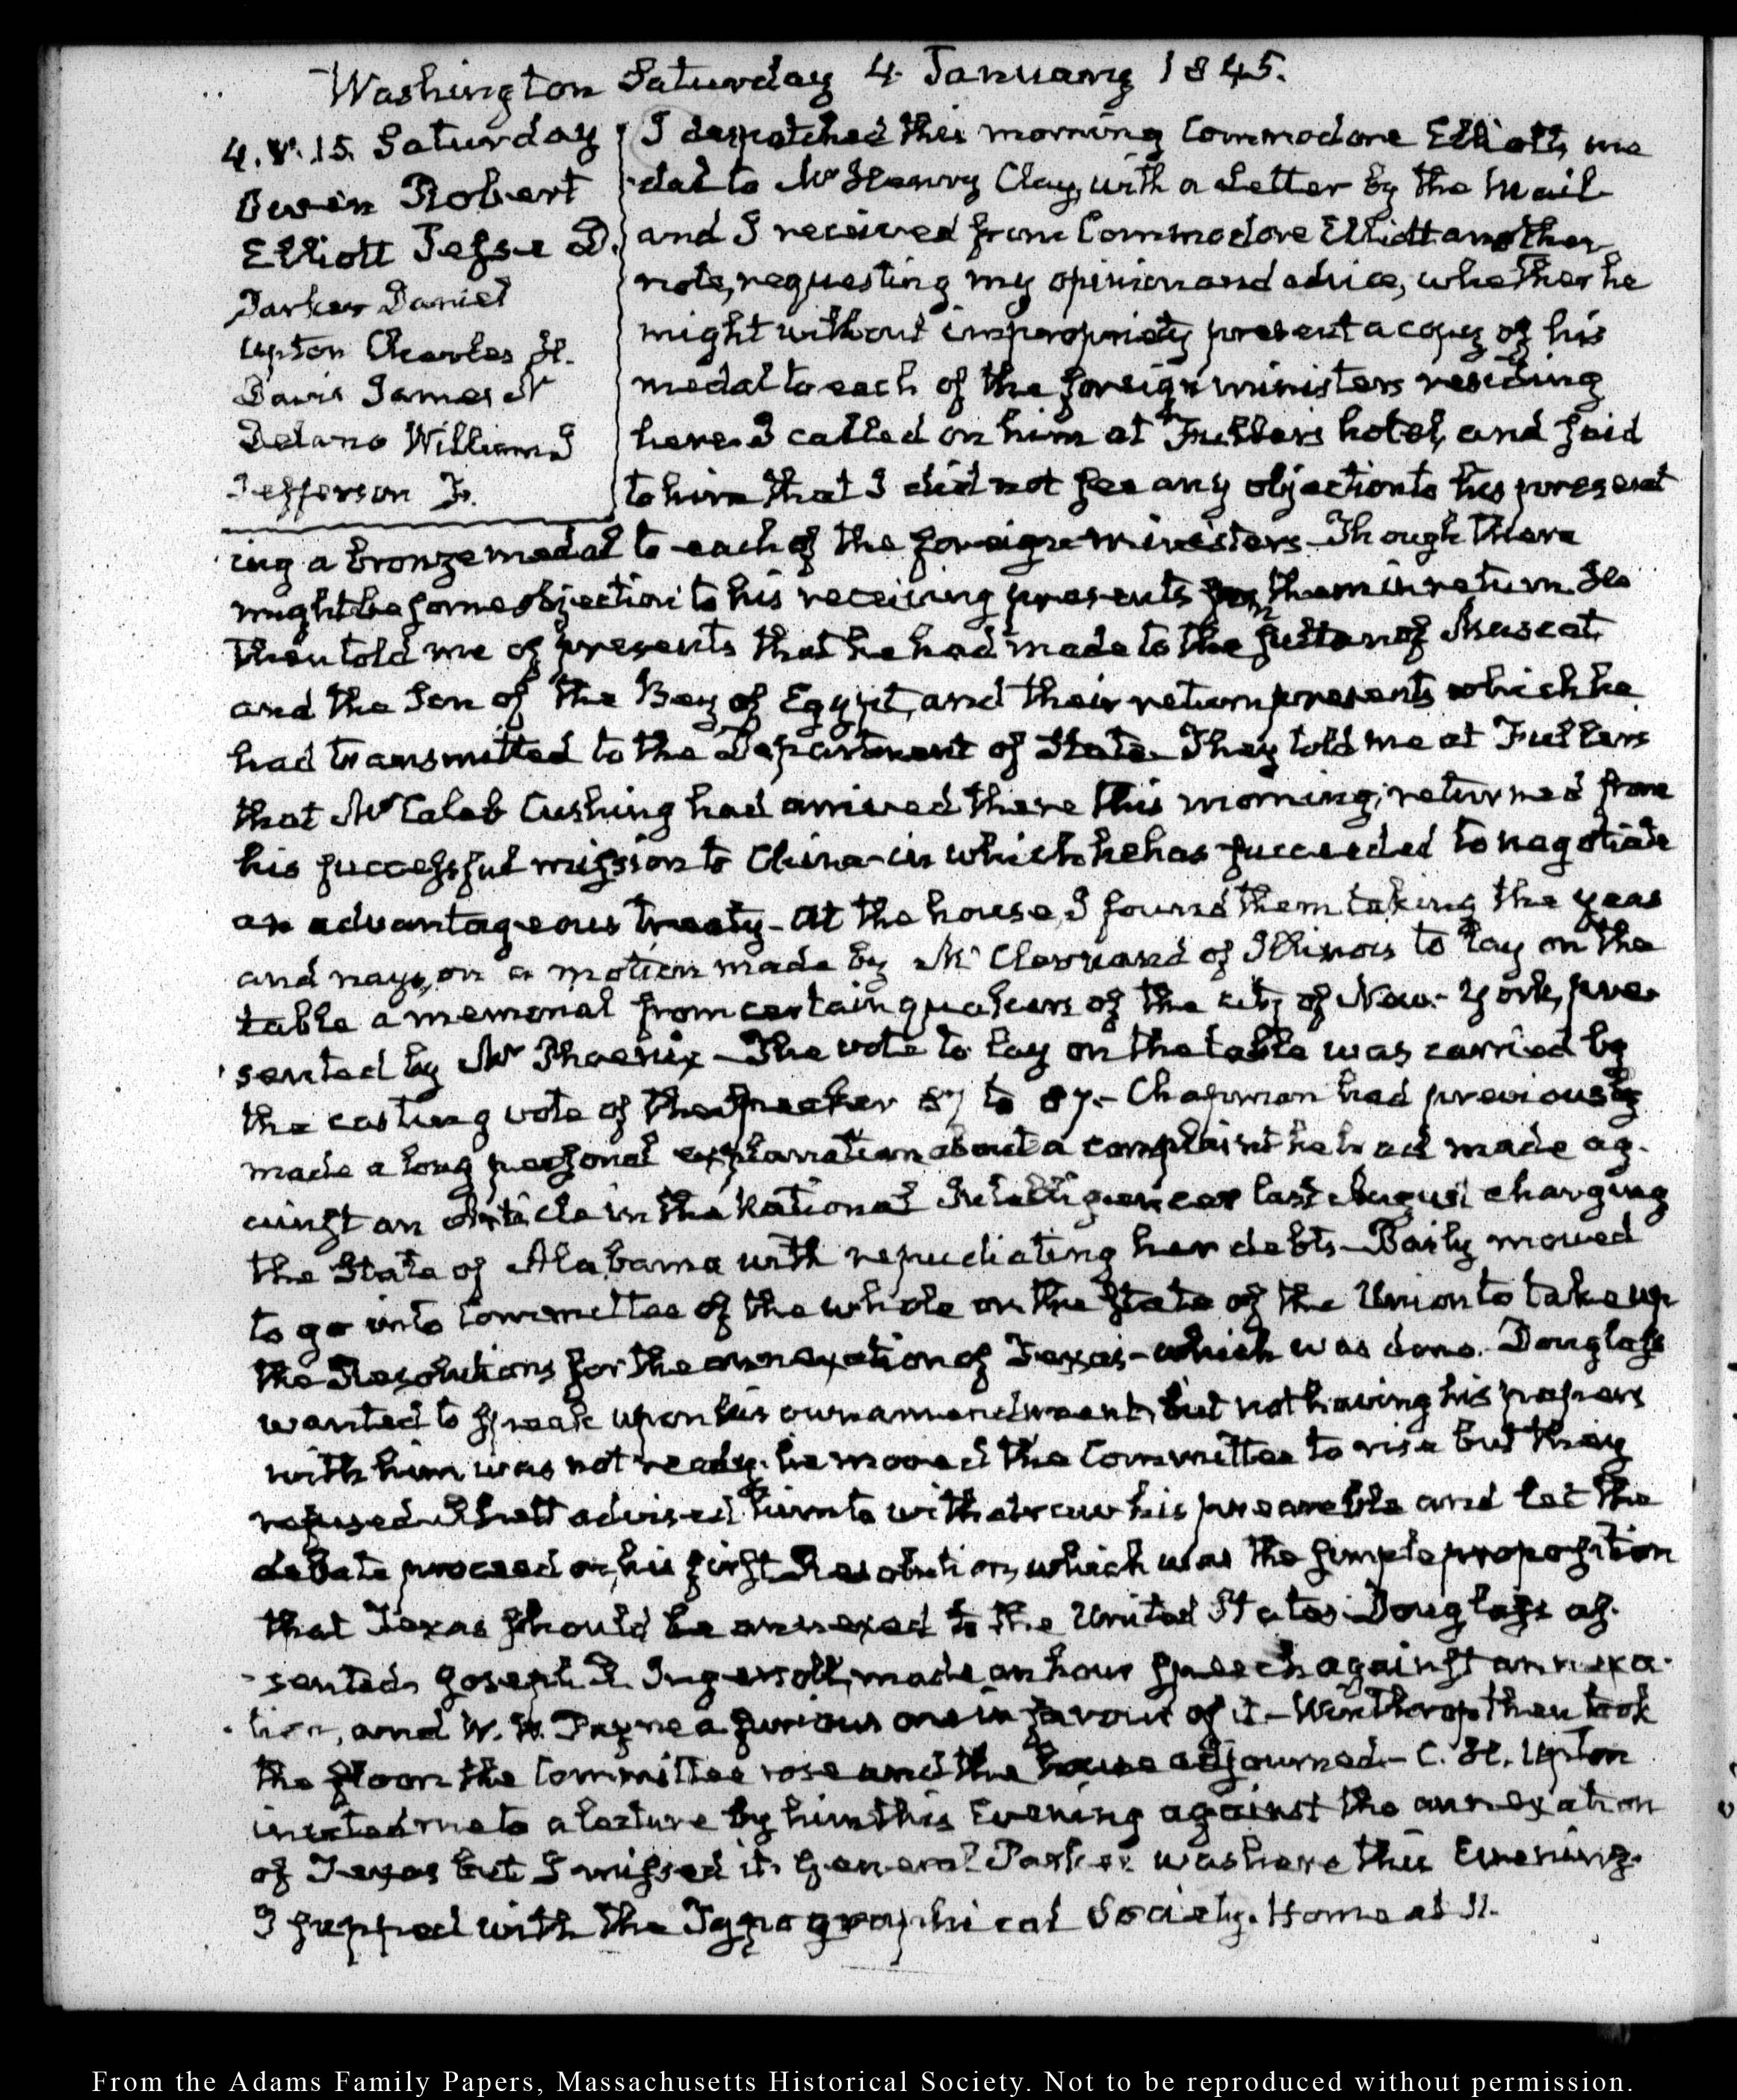 Washington Saturday 4. January 1845.
4. V. 15. Saturday
Owen Robert
Elliott Jesse D.
Parker Daniel
Upton Charles H.
Davis James N
Delano William J
Jefferson J.
I despatched this morning Commodore Elliott's me
dal to Mr Henry Clay, with a Letter by the Mail
and I received from Commodore Elliott another
note, requesting my opinion and advice, whether he
might without impropriety present a copy of his
medal to each of the foreign ministers residing
here. I called on him at Fuller's hotel, and said
to him that I did not see any objection to his present
ing a bronze medal to each of the foreign ministers. Though there
might be some objection to his receiving presents from them in return. He
then told me of presents that he had made to the Sultan of Muscat,
and the Son of the Bey of Egypt, and their return presents which he
had transmitted to the Department of State. They told me at Fullers
that Mr Caleb Cushing had arrived there this morning; returned from
his successful mission to China in which he has succeeded to negotiate
an advantageous treaty. At the house, I found them taking the yeas
and nays, on a motion made by Mc Clernand of Illinois to lay on the
table a memorial from certain quakers of the city of New-York, pre
sented by Mr Phoenix - The vote to lay on the table was carried by
the casting vote of the Speaker 87 to 87.- Chapman had previously
made a long personal explanation about a complaint he had made ag-
ainst an Article in the National Intelligencer last August charging
the State of Alabama with repudiating her debts - Bayly moved
to go into Committee of the whole on the State of the Union to take up
the Resolutions for the annexation of Texas - which was done. Douglass
wanted to speak upon his own amendment, but not having his papers
with him was not ready. he moved the Committee to rise but they
refused. Rhett advised him to withdraw his preamble and let the
debate proceed on his first Resolution, which was the simple proposition
that Texas should be annexed to the United States. Douglass as-
sented. Joseph R. Ingersoll, made an hour speech against annexa-
tion, and W. W. Payne a furious one in favour of it - Winthrop then took
the floor the Committee rose and the house adjourned - C. H. Upton
invited me to a lecture by him this Evening against the annexation
of Texas but I missed it. General Parker was here this Evening.
I supped with the Typographical Society. Home at 11.
From the Adams Family Papers, Massachusetts Historical Society. Not to be reproduced without permission.